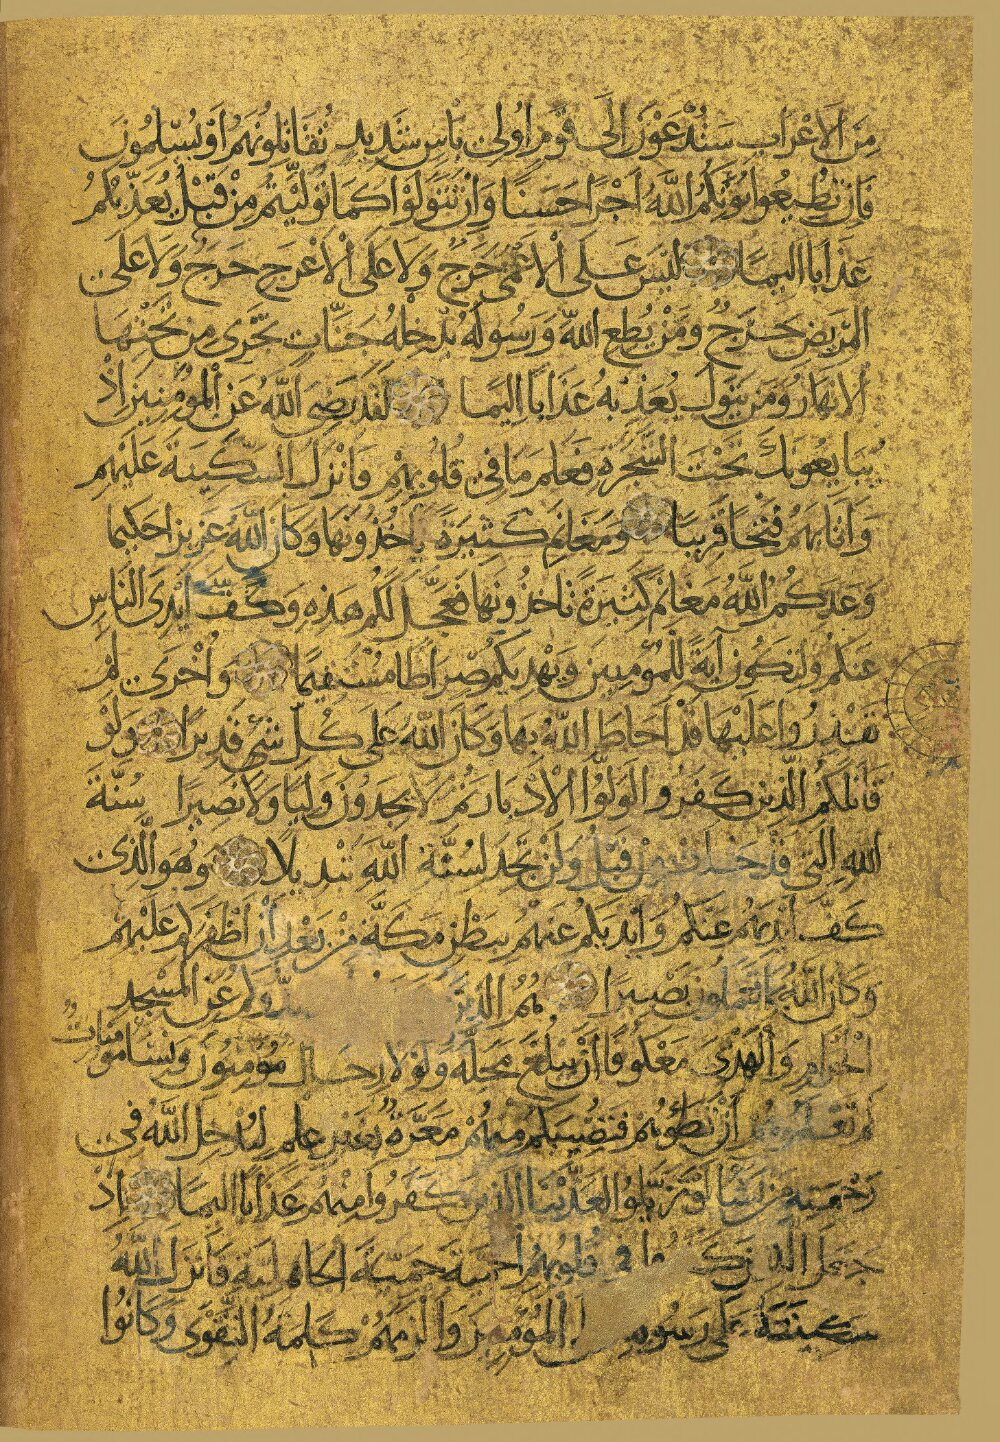 مِنَ الْاَعْرَابِ سَتُدْعَوْنَ اِلٰى قَوْمٍ اُولِى بَأْسٍ شَدِيدٍ تُقَاتِلُونَهُمْ اَوْ يُسْلِمُونَ
فَاِنْ تُطِيعُوا يُؤْتِكُمُ اللّٰهُ اَجْرًا حَسَنًا وَاِنْ تَتَوَلَّوْا كَمَا تَوَلَّيْتُمْ مِنْ قَبْلُ يُعَذِّبْكُمْ
عَذَابًا اَلِيمًا لَيْسَ عَلَى الْاَعْمٰى حَرَجٌ وَلَا عَلَى الْاَعْرَجِ حَرَجٌ وَلَا عَلَى
الْمَرِيضِ حَرَجٌ وَمَنْ يُطِعِ اللّٰهَ وَرَسُولَهُ يُدْخِلْهُ جَنَّاتٍ تَجْرِى مِنْ تَحْتِهَا
الْاَنْهَارُ وَمَنْ يَتَوَلَّ يُعَذِّبْهُ عَذَابًا اَلِيمًا لَقَدْ رَضِىَ اللّٰهُ عَنِ الْمُؤْمِنِينَ اِذْ
يُبَايِعُونَكَ تَحْتَ الشَّجَرَةِ فَعَلِمَ مَا فِى قُلُوبِهِمْ فَاَنْزَلَ السَّكِينَةَ عَلَيْهِمْ
وَاَثَابَهُمْ فَتْحًا قَرِيبًا وَمَغَانِمَ كَثِيرَةً يَأْخُذُونَهَا وَكَانَ اللّٰهُ عَزِيزًا حَكِيمًا
وَعَدَكُمُ اللّٰهُ مَغَانِمَ كَثِيرَةً تَأْخُذُونَهَا فَعَجَّلَ لَكُمْ هٰذِهِ وَكَفَّ اَيْدِىَ النَّاسِ
عَنْكُمْ وَلِتَكُونَ اٰيَةً لِلْمُؤْمِنِينَ وَيَهْدِيَكُمْ صِرَاطًا مُسْتَقِيمًا وَاُخْرٰى لَمْ
تَقْدِرُوا عَلَيْهَا قَدْ اَحَاطَ اللّٰهُ بِهَا وَكَانَ اللّٰهُ عَلٰى كُلِّ شَىْءٍ قَدِيرًا وَلَوْ
قَاتَلَكُمُ الَّذِينَ كَفَرُوا لَوَلَّوُا الْاَدْبَارَ ثُمَّ لَا يَجِدُونَ وَلِيًّا وَلَا نَصِيرًا سُنَّةَ
اللّٰهِ الَّتِى قَدْ خَلَتْ مِنْ قَبْلُ وَلَنْ تَجِدَ لِسُنَّةِ اللّٰهِ تَبْدِيلًا وَهُوَ الَّذِى
كَفَّ اَيْدِيَهُمْ عَنْكُمْ وَاَيْدِيَكُمْ عَنْهُمْ بِبَطْنِ مَكَّةَ مِنْ بَعْدِ اَنْ اَظْفَرَكُمْ عَلَيْهِمْ
وَكَانَ اللّٰهُ بِمَا تَعْمَلُونَ بَصِيرًا هُمُ الَّذِينَ عَنِ الْمَسْجِدِ
الْحَرَامِ وَالْهَدْىَ مَعْكُوفًا اَنْ يَبْلُغَ مَحِلَّهُ وَلَوْلَا رِجَالٌ مُؤْمِنُونَ وَنِسَاءٌ مُؤْمِنَاتٌ
لَمْ تَعْلَمُوهُمْ اَنْ تَطَؤُهُمْ فَتُصِيبَكُمْ مِنْهُمْ مَعَرَّةٌ بِغَيْرِ عِلْمٍ لِيُدْخِلَ اللّٰهُ فِى
رَحْمَتِهِ مَنْ يَشَاءُ لَوْ تَزَيَّلُوا لَعَذَّبْنَا الَّذِينَ كَفَرُوا مِنْهُمْ عَذَابًا اَلِيمًا اِذْ
جَعَلَ الَّذِينَ كَفَرُوا فِى قُلُوبِهِمُ الْحَمِيَّةَ حَمِيَّةَ الْجَاهِلِيَّةِ فَاَنْزَلَ اللّٰهُ
سَكِينَتَهُ عَلٰى رَسُولِهِ الْمُؤْمِنِينَ وَاَلْزَمَهُمْ كَلِمَةَ التَّقْوٰى وَكَانُوا